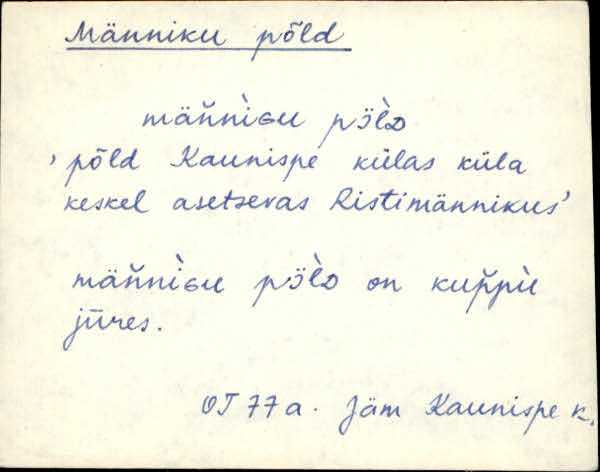 Männiku põld
män̆ǹiɢu pɔ̈̀lᴅ
'põld Kaunispe külas küla
keskel asetsevas Ristimännikus'
män̆ǹiɢu pɔ̈̀lᴅ on kup̆pìi
jūres.
OT 77 a. Jäm Kaunispe k.